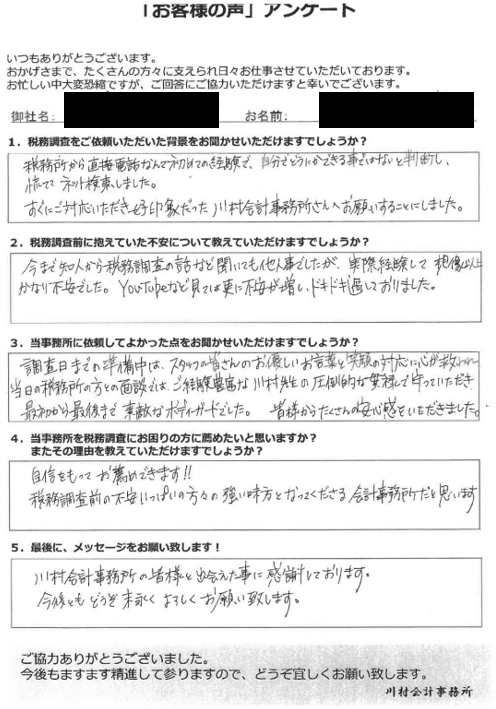 「お客様の声」アンケート
いつもありがとうございます。
おかげさまで、たくさんの方々に支えられ日々お仕事させていただいております。
お忙しい中大変恐縮ですが、ご回答にご協力いただけますと幸いでございます。
御社名： お名前：
1．税務調査をご依頼いただいた背景をお聞かせいただけますでしょうか？
税務所から直接電話なんて初めての経験で、自分でどうにかできる事ではないと判断し、
慌てて ネット検索しました。
すぐにご対応いただき好印象だった川村会計事務所さんへお願いすることにしました。
2．税務調査前に抱えていた不安について教えていただけますでしょうか？
今まで知人から税務調査の話など聞いても他人事でしたが、実際経験して 想像以上
かなり不安でした。YouTubeなど見ては更に不安が増し、ドキドキ過しておりました。
3．当事務所に依頼してよかった点をお聞かせいただけますでしょうか？
調査日までの準備中は、スタッフの皆さんのお優しいお言葉と笑顔の対応に心が救われ
当日の税務所の方との面談では、ご経験豊富な川村先生の圧倒的な業種で守っていただき
最初から最後まで 素敵なボディガードでした。 皆様からたくさんの安心感をいただきました。
4．当事務所を税務調査にお困りの方に薦めたいと思いますか？
またその理由を教えていただけますでしょうか？
自信をもって お薦めできます!!
税務調査前の不安いっぱいの方々の 強い味方となってくださる 会計事務所だと思います
5．最後に、メッセージをお願い致します！
川村会計事務所の皆様と出会えた事に感謝しております。
今後ともどうぞ 末永く よろしくお願い致します。
ご協力ありがとうございました。
今後もますます精進して参りますので、どうぞ宜しくお願い致します。
川村会計事務所